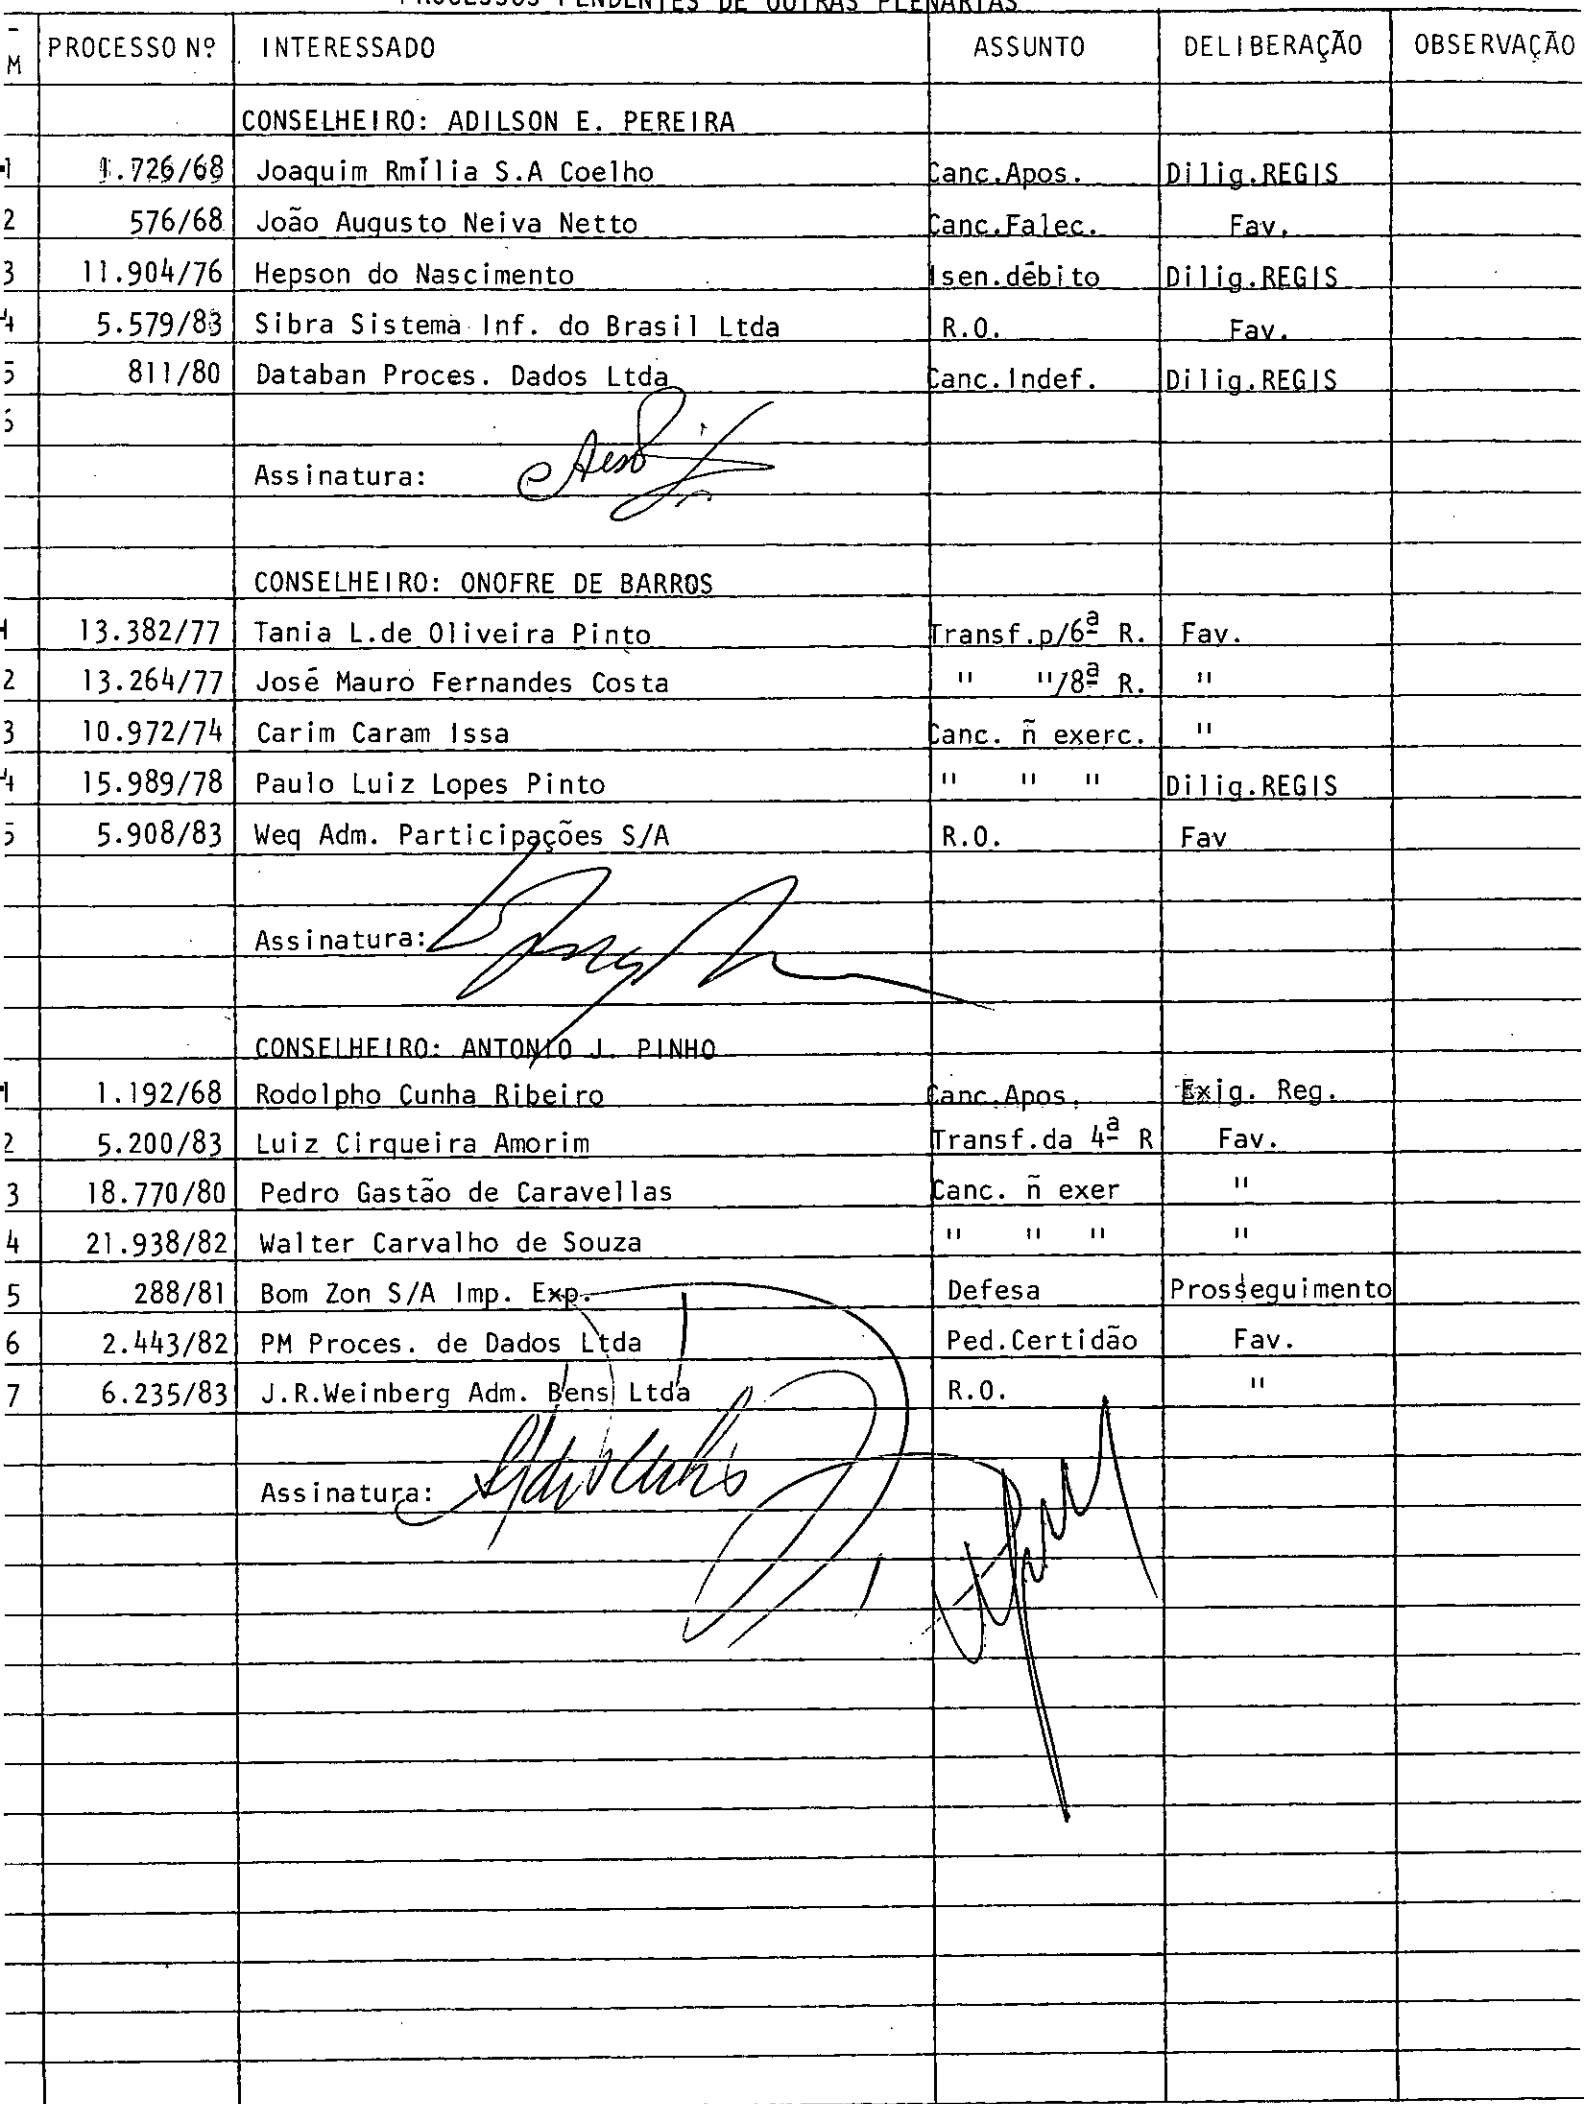 PROCESSOS PENDENTES DE OUTRAS PLENARIAS
M PROCESSO Nº INTERESSADO ASSUNTO DELIBERAÇÃO OBSERVAÇÃO
CONSELHEIRO: ADILSON E. PEREIRA
1 1.726/68 Joaquim Rmília S.A Coelho Canc.Apos. Dilig.REGIS
2 576/68 João Augusto Neiva Netto Canc.Falec. Fav.
3 11.904/76 Hepson do Nascimento Isen.débito Dilig.REGIS
4 5.579/83 Sibra Sistema Inf. do Brasil Ltda R.O. Fav.
5 811/80 Databan Proces. Dados Ltda Canc.Indef. Dilig.REGIS
6
Assinatura:
CONSELHEIRO: ONOFRE DE BARROS
1 13.382/77 Tania L.de Oliveira Pinto Transf.p/6ª R. Fav.
2 13.264/77 José Mauro Fernandes Costa " "/8ª R. "
3 10.972/74 Carim Caram Issa Canc. ñ exerc. "
4 15.989/78 Paulo Luiz Lopes Pinto " " " Dilig.REGIS
5 5.908/83 Weq Adm. Participações S/A R.O. Fav
Assinatura:
CONSELHEIRO: ANTONIO J. PINHO
1 1.192/68 Rodolpho Cunha Ribeiro Canc.Apos. Exig. Reg.
2 5.200/83 Luiz Cirqueira Amorim Transf.da 4ª R Fav.
3 18.770/80 Pedro Gastão de Caravellas Canc. ñ exer "
4 21.938/82 Walter Carvalho de Souza " " " "
5 288/81 Bom Zon S/A Imp. Exp. Defesa Prosseguimento
6 2.443/82 PM Proces. de Dados Ltda Ped.Certidão Fav.
7 6.235/83 J.R.Weinberg Adm. Bens Ltda R.O. "
Assinatura: